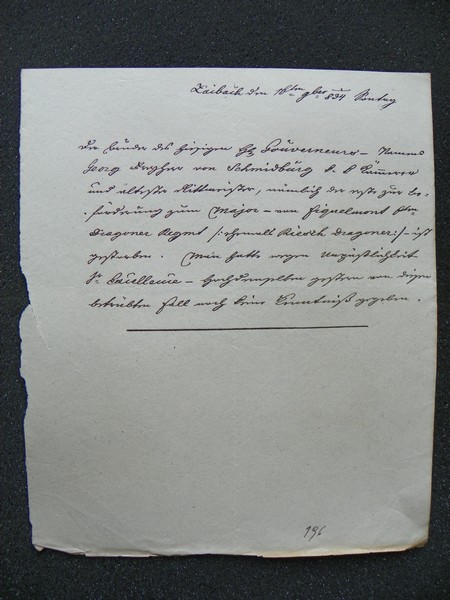 Laibach den 18ten 9ber 834 Montag
Der Bruder des hiesigen H Gouverneurs – Namens
Georg Freyherr von Schmidburg k. k. Kämmerer
und ältester Rittmeister, nämlich der erste zur Be-
förderung zum Major – von Fiquelmont
Dragoner Regmt /: ehemals Riesch Dragoner :/ – ist
gestorben. Man hatte wegen Unpäßlichkeit
Sr Excellenz – Hochdemselben gestern von diesem
betrübten Fall noch keine Kenntniß gegeben.
196